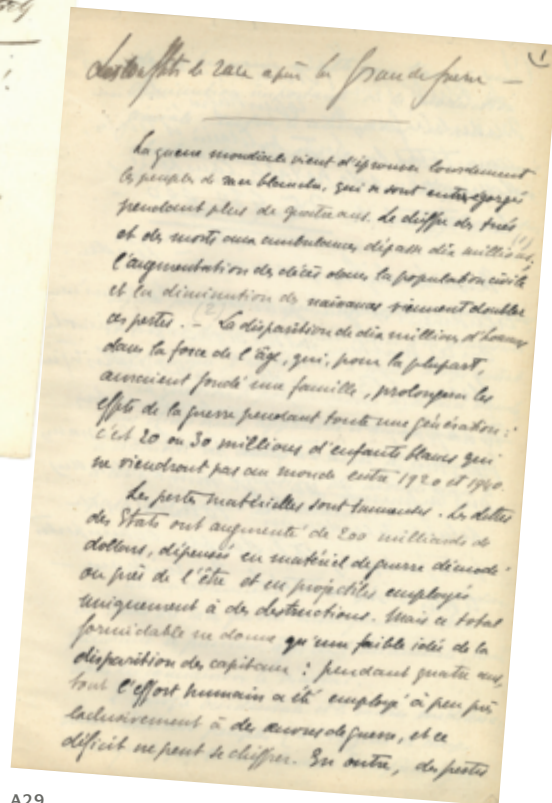 Les conflits de race après la Grande guerre —
1
La guerre mondiale vient d'éprouver lourdement
les peuples de race blanche, qui se sont entre-égorgés
pendant plus de quatre ans. Le chiffre des tués
et des morts aux ambulances dépasse dix millions, (1)
l'augmentation des décès dans la population civile
et la diminution des naissances viennent doubler
ces pertes. — (2) La disparition de dix millions d'hommes
dans la force de l'âge, qui, pour la plupart,
auraient fondé une famille, prolongera les
effets de la guerre pendant toute une génération :
c'est 20 ou 30 millions d'enfants blancs qui
ne viendront pas au monde entre 1920 et 1940.
Les pertes matérielles sont immenses. Les dettes
des Etats ont augmenté de 200 milliards de
dollars, dépensés en matériel de guerre démodé
ou près de l'être et en projectiles employés
uniquement à des destructions. Mais ce total
formidable ne donne qu'une faible idée de la
disparition des capitaux : pendant quatre ans,
tout l'effort humain a été employé à peu près
exclusivement à des œuvres de guerre, et ce
déficit ne peut se chiffrer. En outre, des pertes
A29